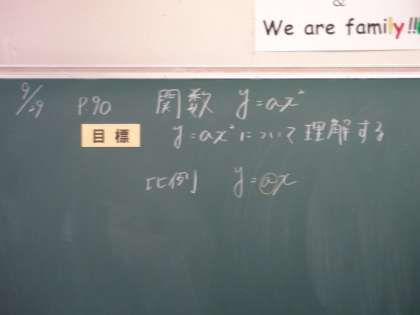 &
We are family!!
9/29 P.90 関数 y=ax²
目標 y=ax²について理解する
比例 y=ax